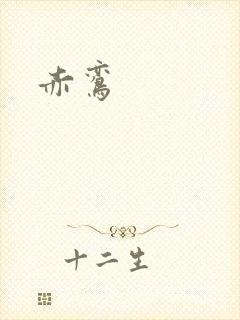 赤鸾
十二生